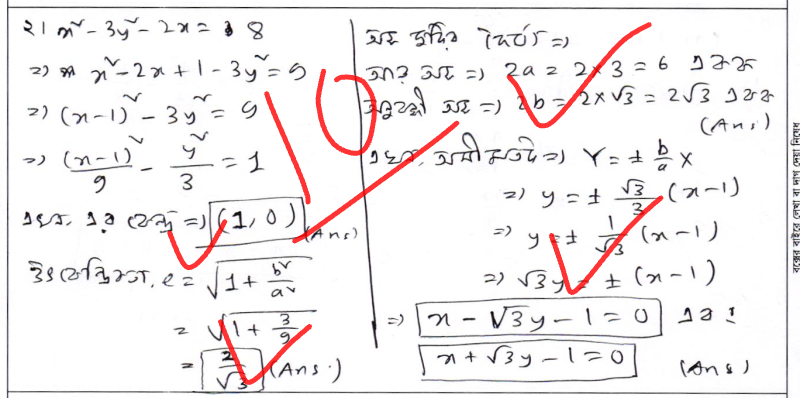 ২। x² - 3y² - 2x = 8
=) x² - 2x + 1 - 3y² = 9
=) (x-1)² - 3y² = 9
=) (x-1)²/9 - y²/3 = 1
এখন, এর কেন্দ্র =) (1, 0) (Ans)
উৎকেন্দ্রিকতা, e = √(1 + b²/a²)
= √(1 + 3/9)
= 2/√3 (Ans.)
অক্ষ দুটির দৈর্ঘ্য =)
আড় অক্ষ =) 2a = 2×3 = 6 একক
অনুবন্ধী অক্ষ =) 2b = 2×√3 = 2√3 একক
(Ans)
এখন, অসীমতট =) Y = ± b/a X
=) y = ± √3/3 (x-1)
=) y = ± 1/√3 (x-1)
=) √3y = ± (x-1)
=) x - √3y - 1 = 0 এবং
x + √3y - 1 = 0 (Ans)
10
বক্সের বাইরে লেখা বা দাগ দেয়া নিষেধ